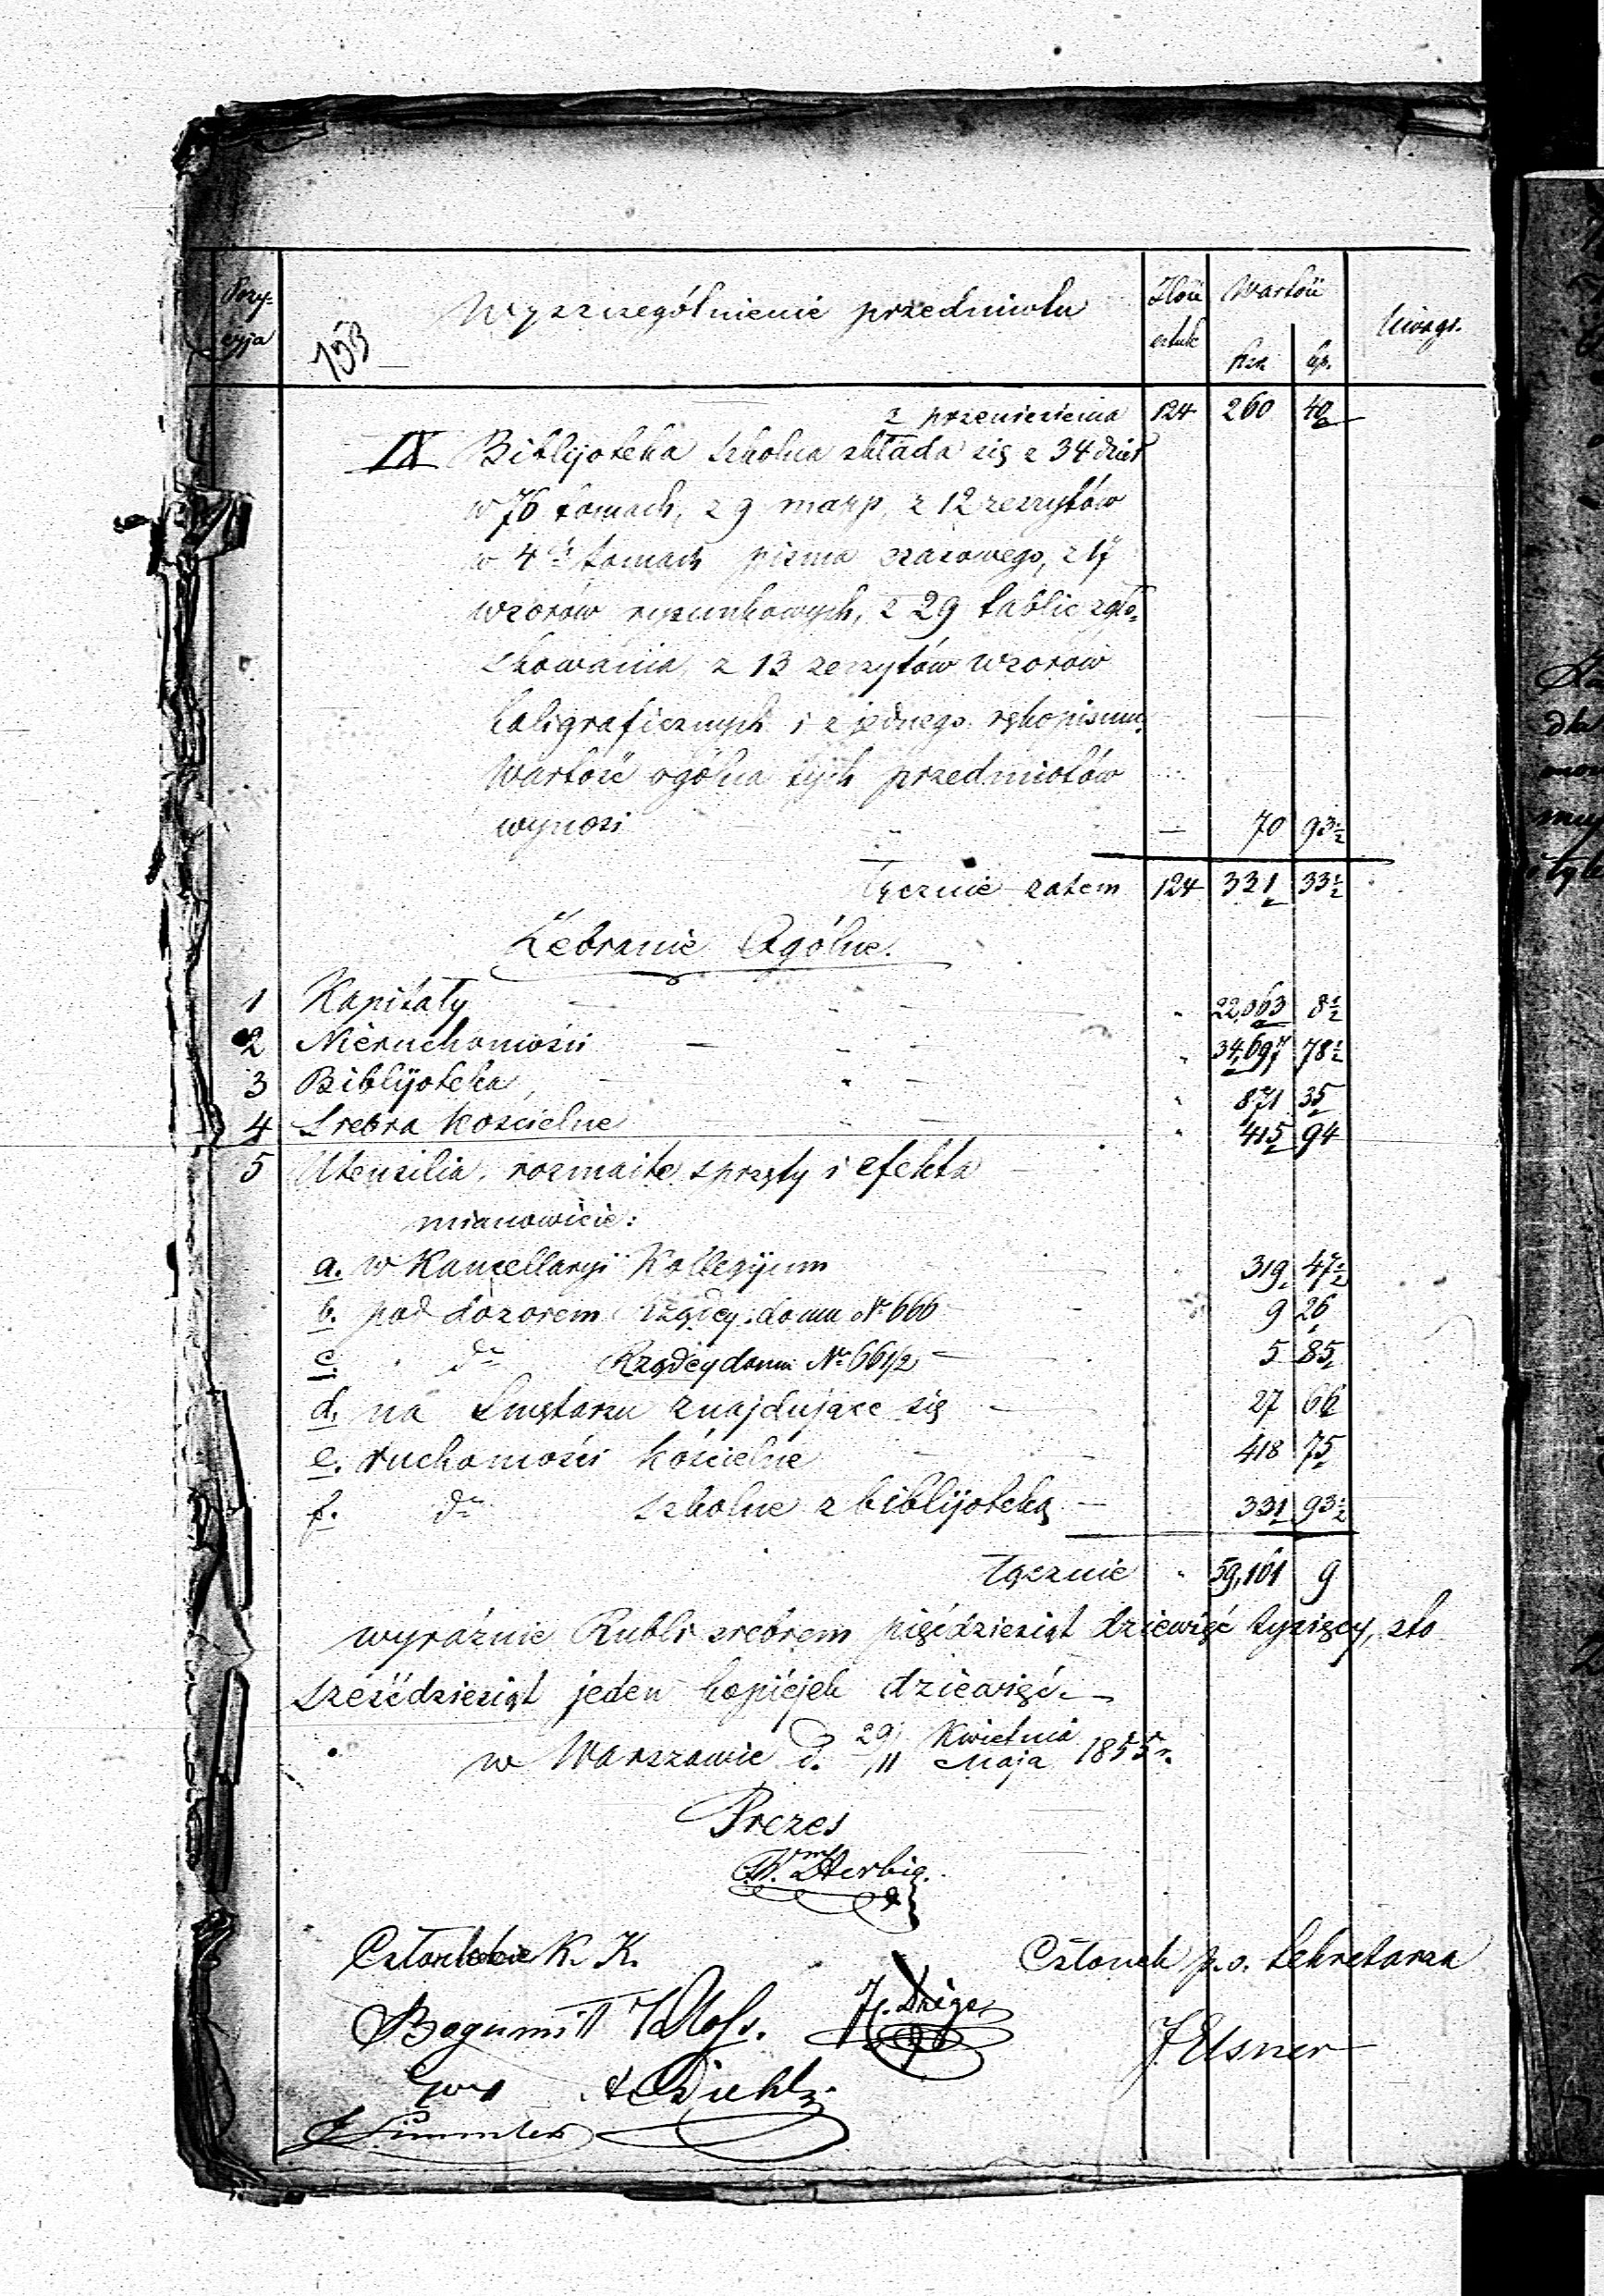 Pozy- Wyszczególnienie przedmiotu Ilość Wartość Uwagi.
cyja 153 sztuk Rsr. kp.
z przeniesienia 124 260 40
IX Biblijoteka szkolna składa się z 34 dzieł
w 76 tomach, z 9 mapp, z 12 zeszytów
w 4ch tomach pisma czasowego, z 17
wzorów rysunkowych, z 29 tablic zgło-
skowania, z 13 zeszytów wzorów
kaligraficznych i z jednego rękopismu.
Wartość ogólna tych przedmiotów
wynosi — 70 93½
Łącznie zatem 124 331 33½
Zebranie Ogólne.
1 Kapitały 22,063 8½
2 Nieruchomości 34,697 78½
3 Biblijoteka 871 35
4 Srebra kościelne 415 94
5 Utensilia, rozmaite sprzęty i efekta
mianowicie:
a. w Kancellaryi Kollegijum 319 47½
b. pod dozorem Rządcy domu No 666 9 26
c. do Rządcy domu No 661/2 5 85
d. na Smętarzu znajdujące się 27 66
e. ruchomości kościelne 418 75
f. do szkolne z biblijoteką 331 93½
Łącznie 59,161 9
wyraźnie Rubli srebrem pięćdziesiąt dziewięć tysięcy, sto
sześćdziesiąt jeden kopiejek dziewięć.
w Warszawie d. 29/11 Kwietnia/Maja 1855 r.
Prezes
Wm. Herbig.
Członkowie K. K. Członek p. o. Sekretarza
Bogumił
J. Elsner